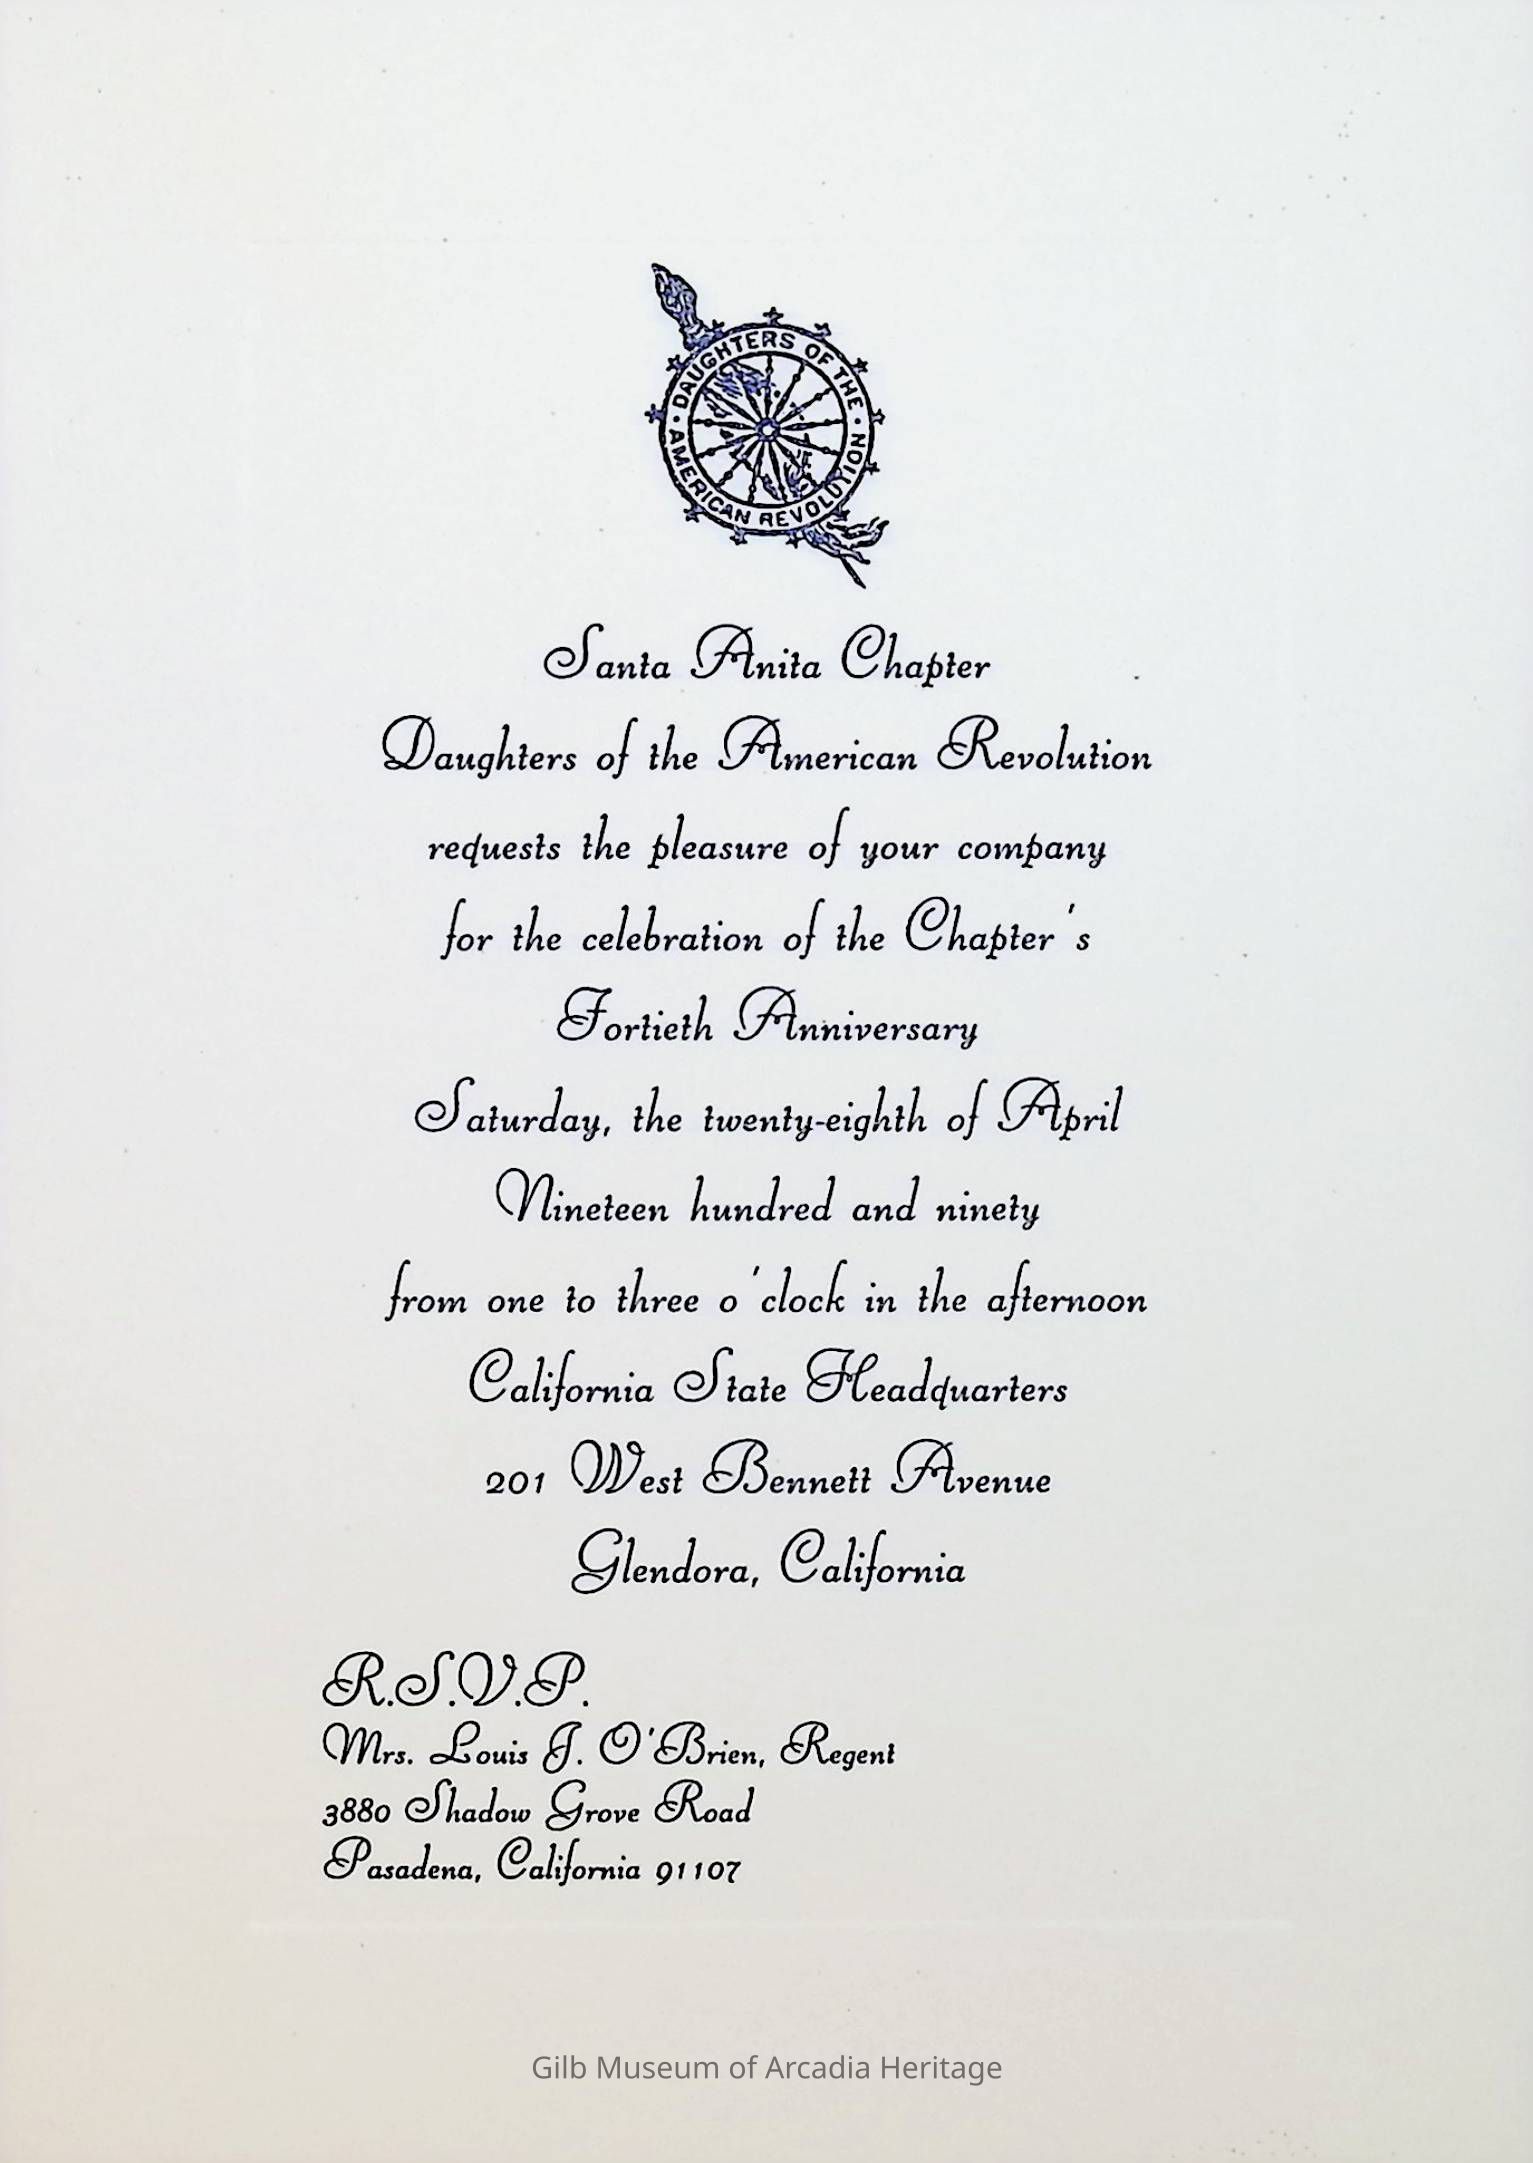 DAUGHTERS OF THE
AMERICAN REVOLUTION
Santa Anita Chapter
Daughters of the American Revolution
requests the pleasure of your company
for the celebration of the Chapter's
Fortieth Anniversary
Saturday, the twenty-eighth of April
Nineteen hundred and ninety
from one to three o'clock in the afternoon
California State Headquarters
201 West Bennett Avenue
Glendora, California
R.S.V.P.
Mrs. Louis J. O'Brien, Regent
3880 Shadow Grove Road
Pasadena, California 91107
Gilb Museum of Arcadia Heritage